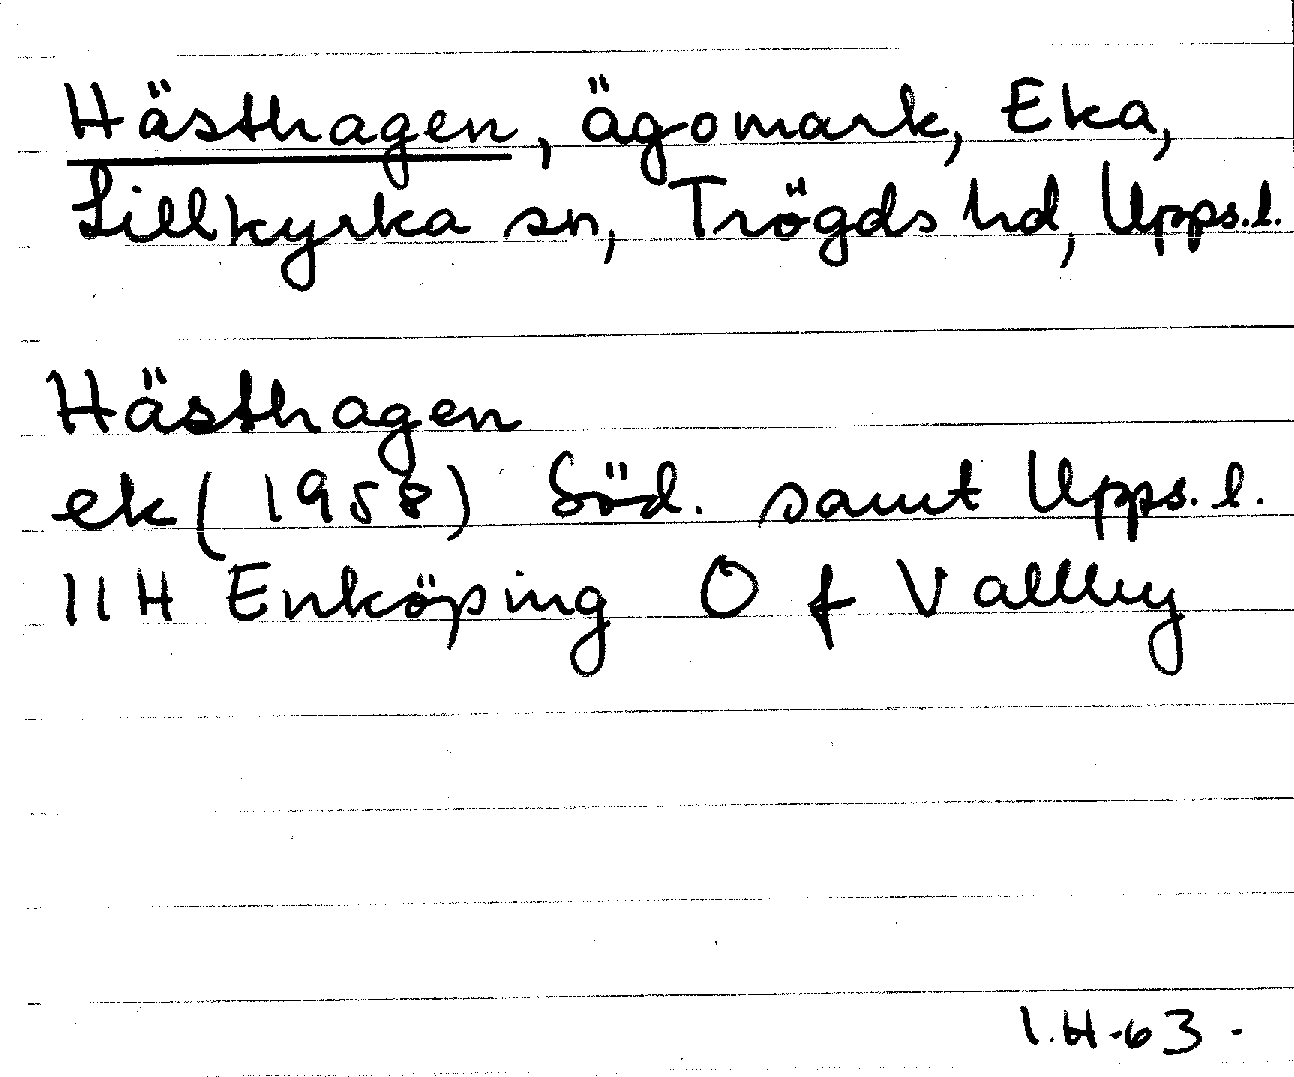 Hästhagen, ägomark, Eka,
Lillkyrka sn, Trögds hd, Upps.l.
Hästhagen
ek (1958) Söd. samt Upps. l.
11H Enköping O f Vallby
I.H-63-